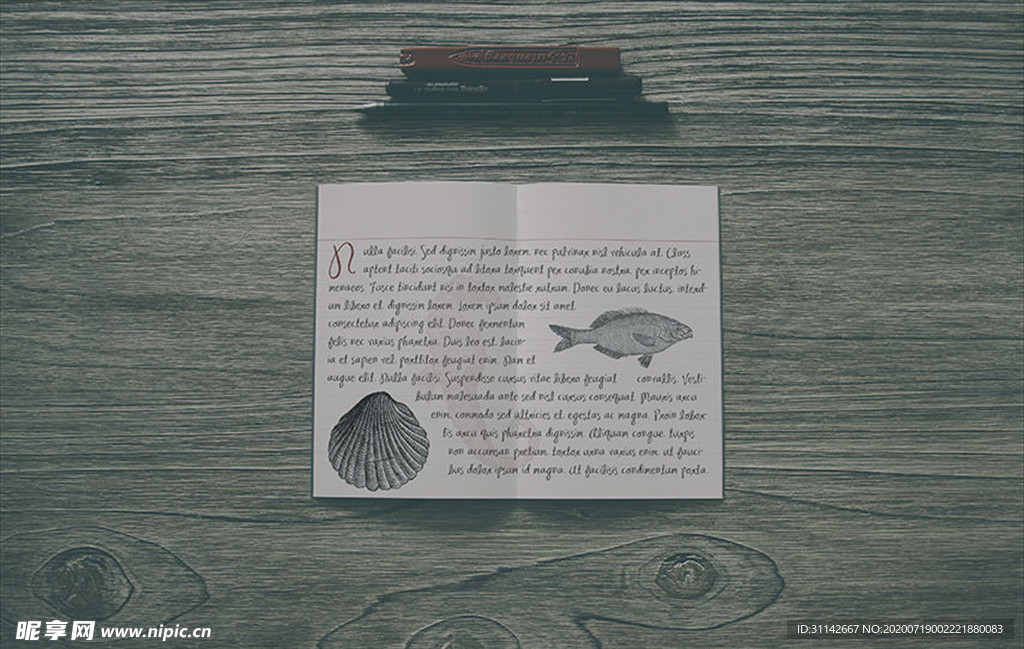 Nulla facilisi. Sed dignissim justo lorem, nec pulvinar nisl vehicula at. Class
aptent taciti sociosqu ad litora torquent per conubia nostra, per inceptos hi-
menaeos. Fusce tincidunt nisi in tortor molestie rutrum. Donec eu lacus luctus, interd-
um libero et, dignissim lorem. Lorem ipsum dolor sit amet,
consectetur adipiscing elit. Donec fermentum
felis nec varius pharetra. Duis leo est, lacin-
ia et sapien vel, porttitor feugiat enim. Nam et
augue elit. Nulla facilisi. Suspendisse cursus vitae libero feugiat convallis. Vesti-
bulum malesuada ante sed nisl cursus consequat. Mauris arcu
enim, commodo sed ultricies et, egestas ac magna. Proin lobor
tis arcu quis pharetra dignissim. Aliquam congue, turpis
non accumsan pretium, tortor urna varius enim, ut fauci-
bus dolor ipsum id magna. Ut facilisis condimentum porta.
昵享网 www.nipic.cn
ID:31142667 NO:20200719002221880083